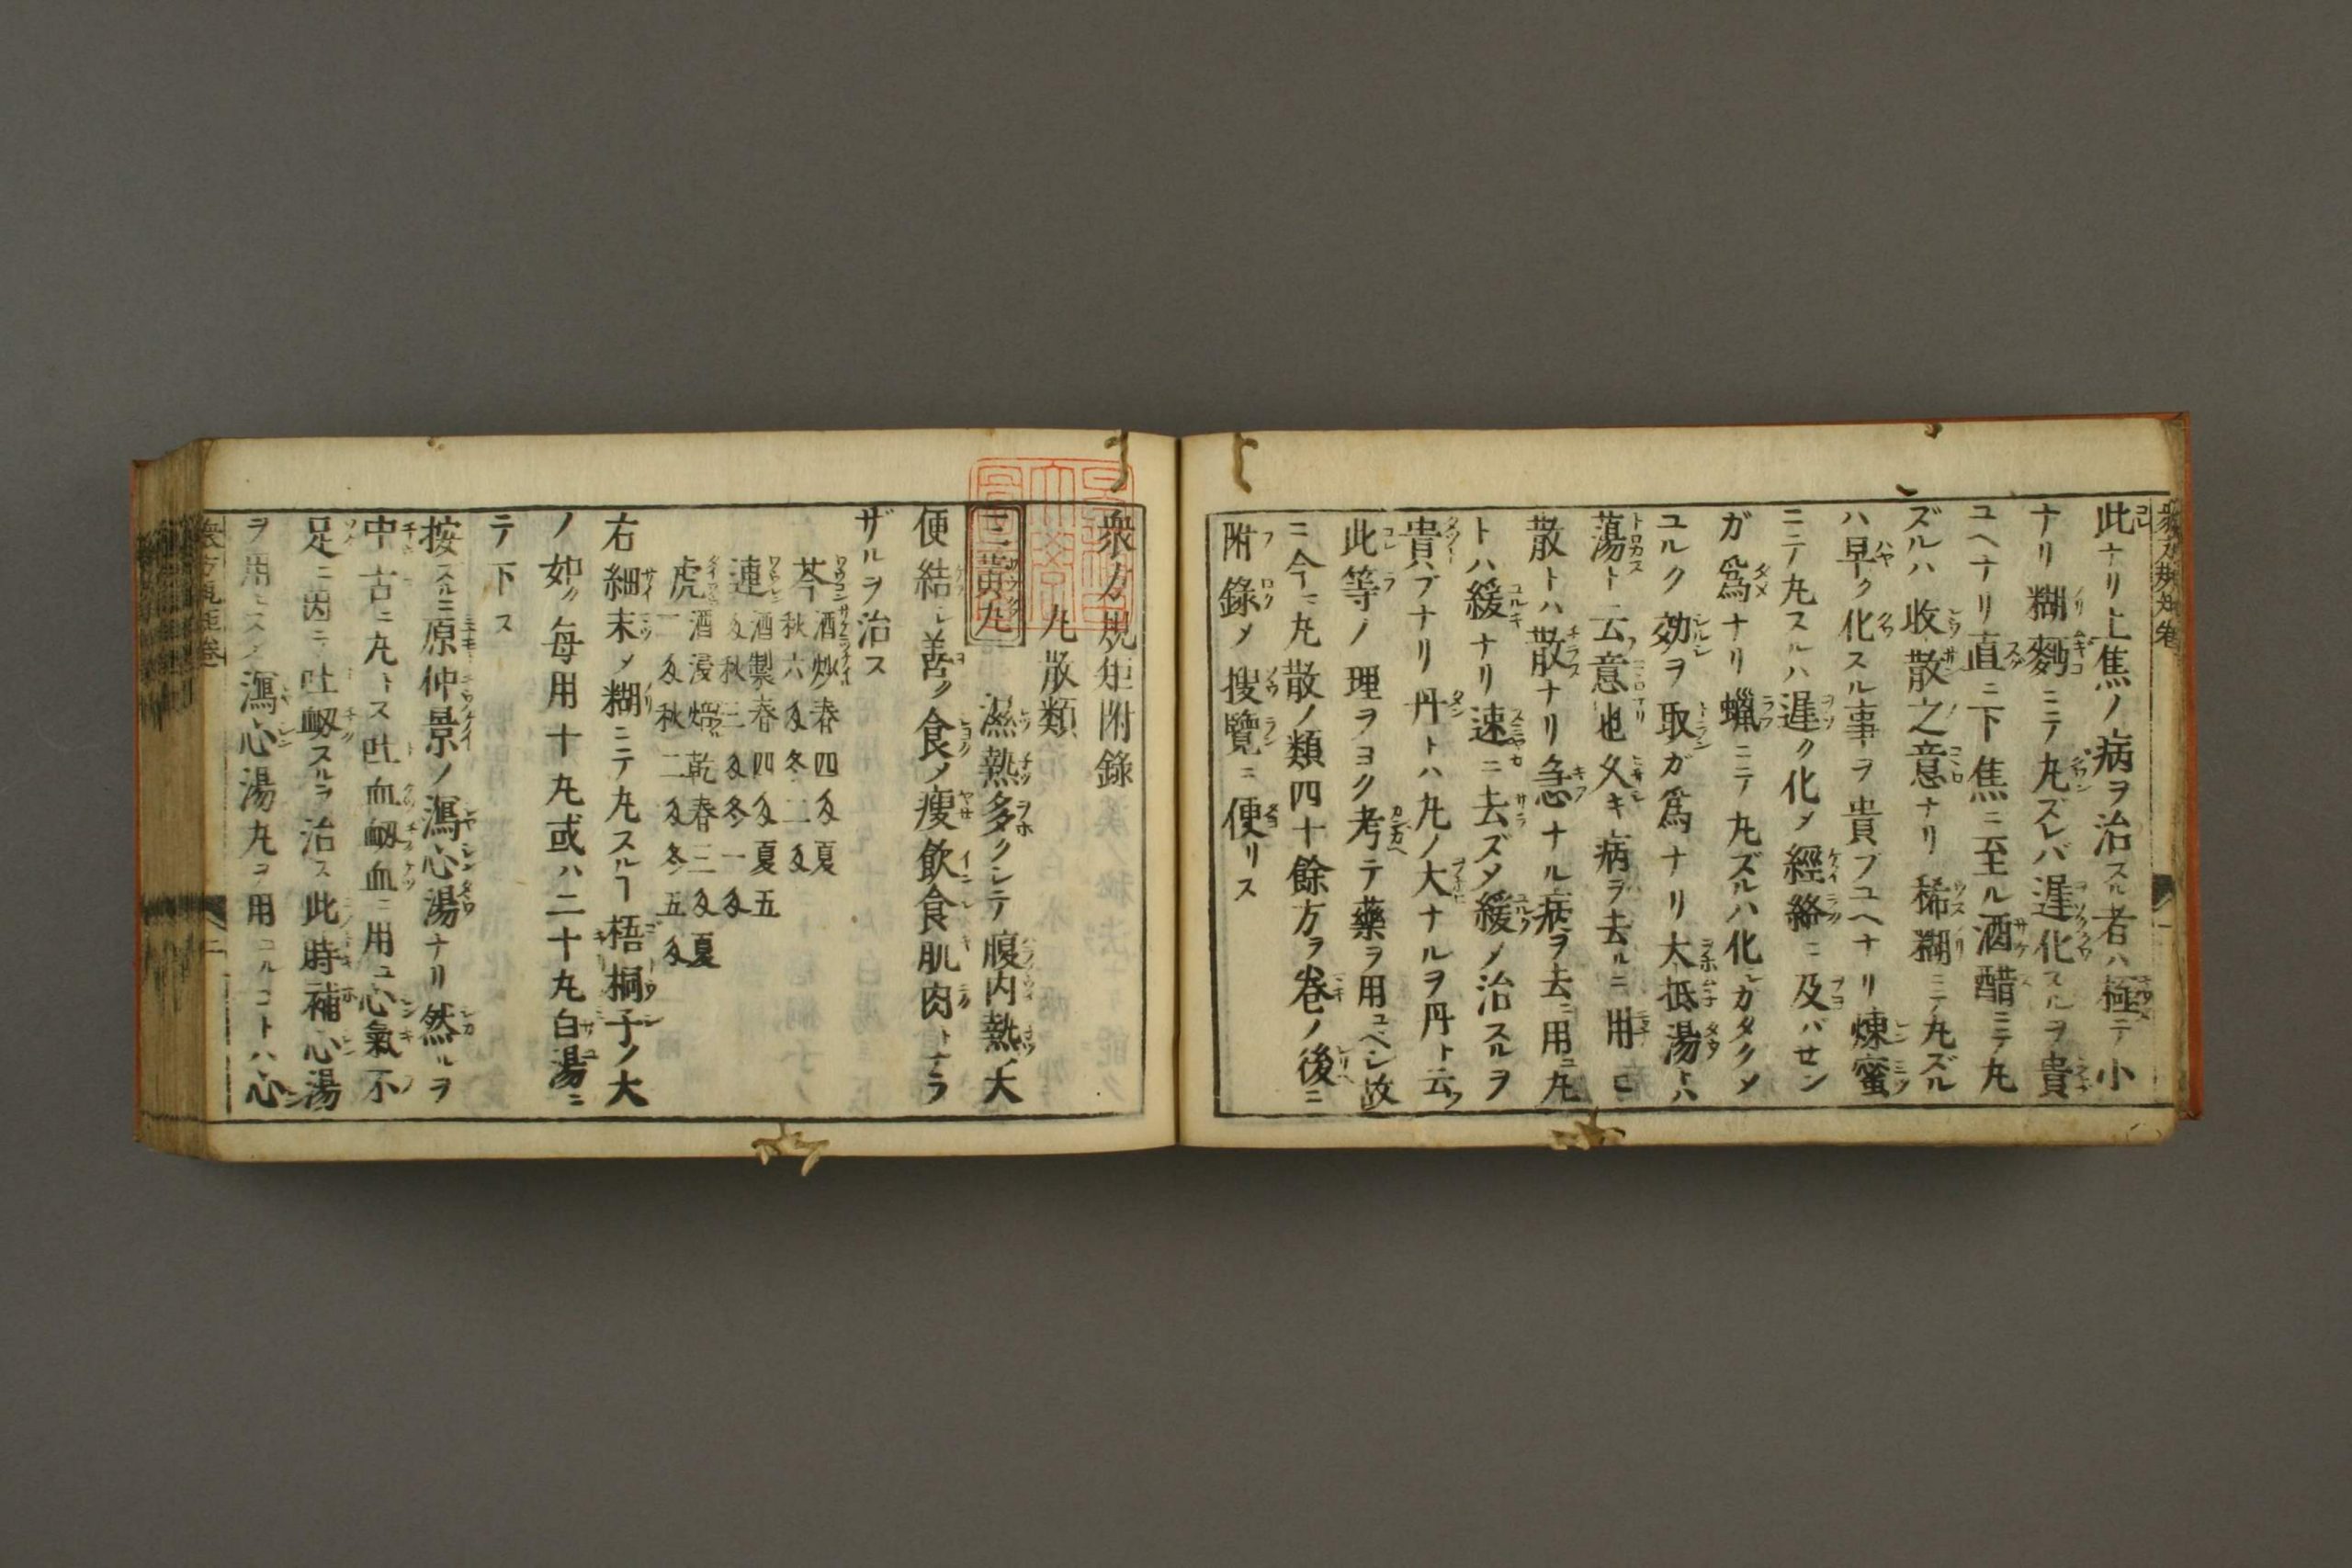 此ナリ上焦ノ病ヲ治スル者ハ極テ小
ナリ糊麪ニテ丸ズレバ遅化スルヲ貴
ユヘナリ直ニ下焦ニ至ル酒醋ニテ丸
ズルハ收散之意ナリ稀糊ニテ丸ズル
ハ早ク化スル事ヲ貴ブユヘナリ煉蜜
ニテ丸スルハ遅ク化メ經絡ニ及バセン
ガ爲ナリ蠟ニテ丸ズルハ化シカタクメ
ユルク効ヲ取ガ爲ナリ大抵湯トハ
蕩ト云意也久キ病ヲ去ルニ用
散トハ散ナリ急ナル病ヲ去ニ用ユ丸
トハ緩ナリ速ニ去ズメ緩メ治スルヲ
貴ブナリ丹トハ丸ノ大ナルヲ丹ト云
此等ノ理ヲヨク考テ藥ヲ用ユベシ故
ニ今丸散ノ類四十餘方ヲ卷ノ後ニ
附錄メ搜覽ニ便リス
衆方規矩附錄
丸散類
三黃丸 濕熱多クシテ腹内熱メ大
便結シ善ク食メ瘦飲食肌肉トナラ
ザルヲ治ス
芩 酒炒春四夏
秋六冬二
連 酒製春四夏五
秋三冬一
虎 酒浸焙乾春三夏
一秋二冬五
右細末メ糊ニテ丸スルヿ梧桐子ノ大
ノ如ク毎用十丸或ハ二十丸白湯ニ
テ下ス
按スルニ原仲景ノ瀉心湯ナリ然ルヲ
中古ニ丸トス吐血衂血ニ用ユ心氣不
足ニ因テ吐衂スルヲ治ス此時補心湯
ヲ用ユ瀉心湯丸ヲ用ユルコトハ心